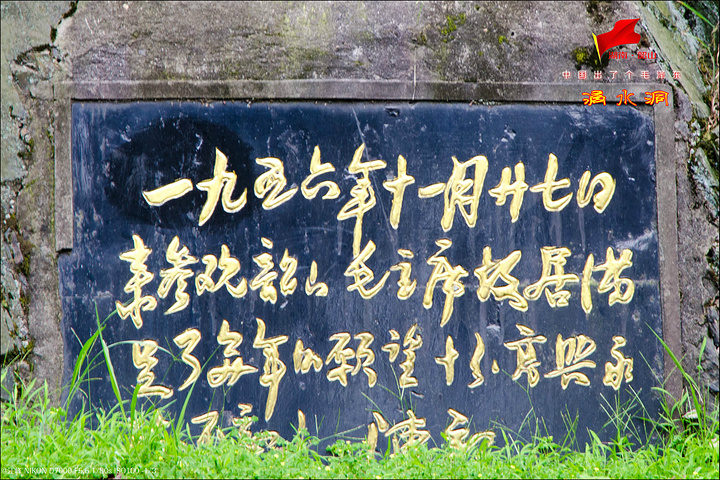 中国出了个毛泽东
滴水洞
一九五六年十一月廿七日
来参观韶山毛主席故居满
足了多年的愿望十分高兴永
NIKON D7000